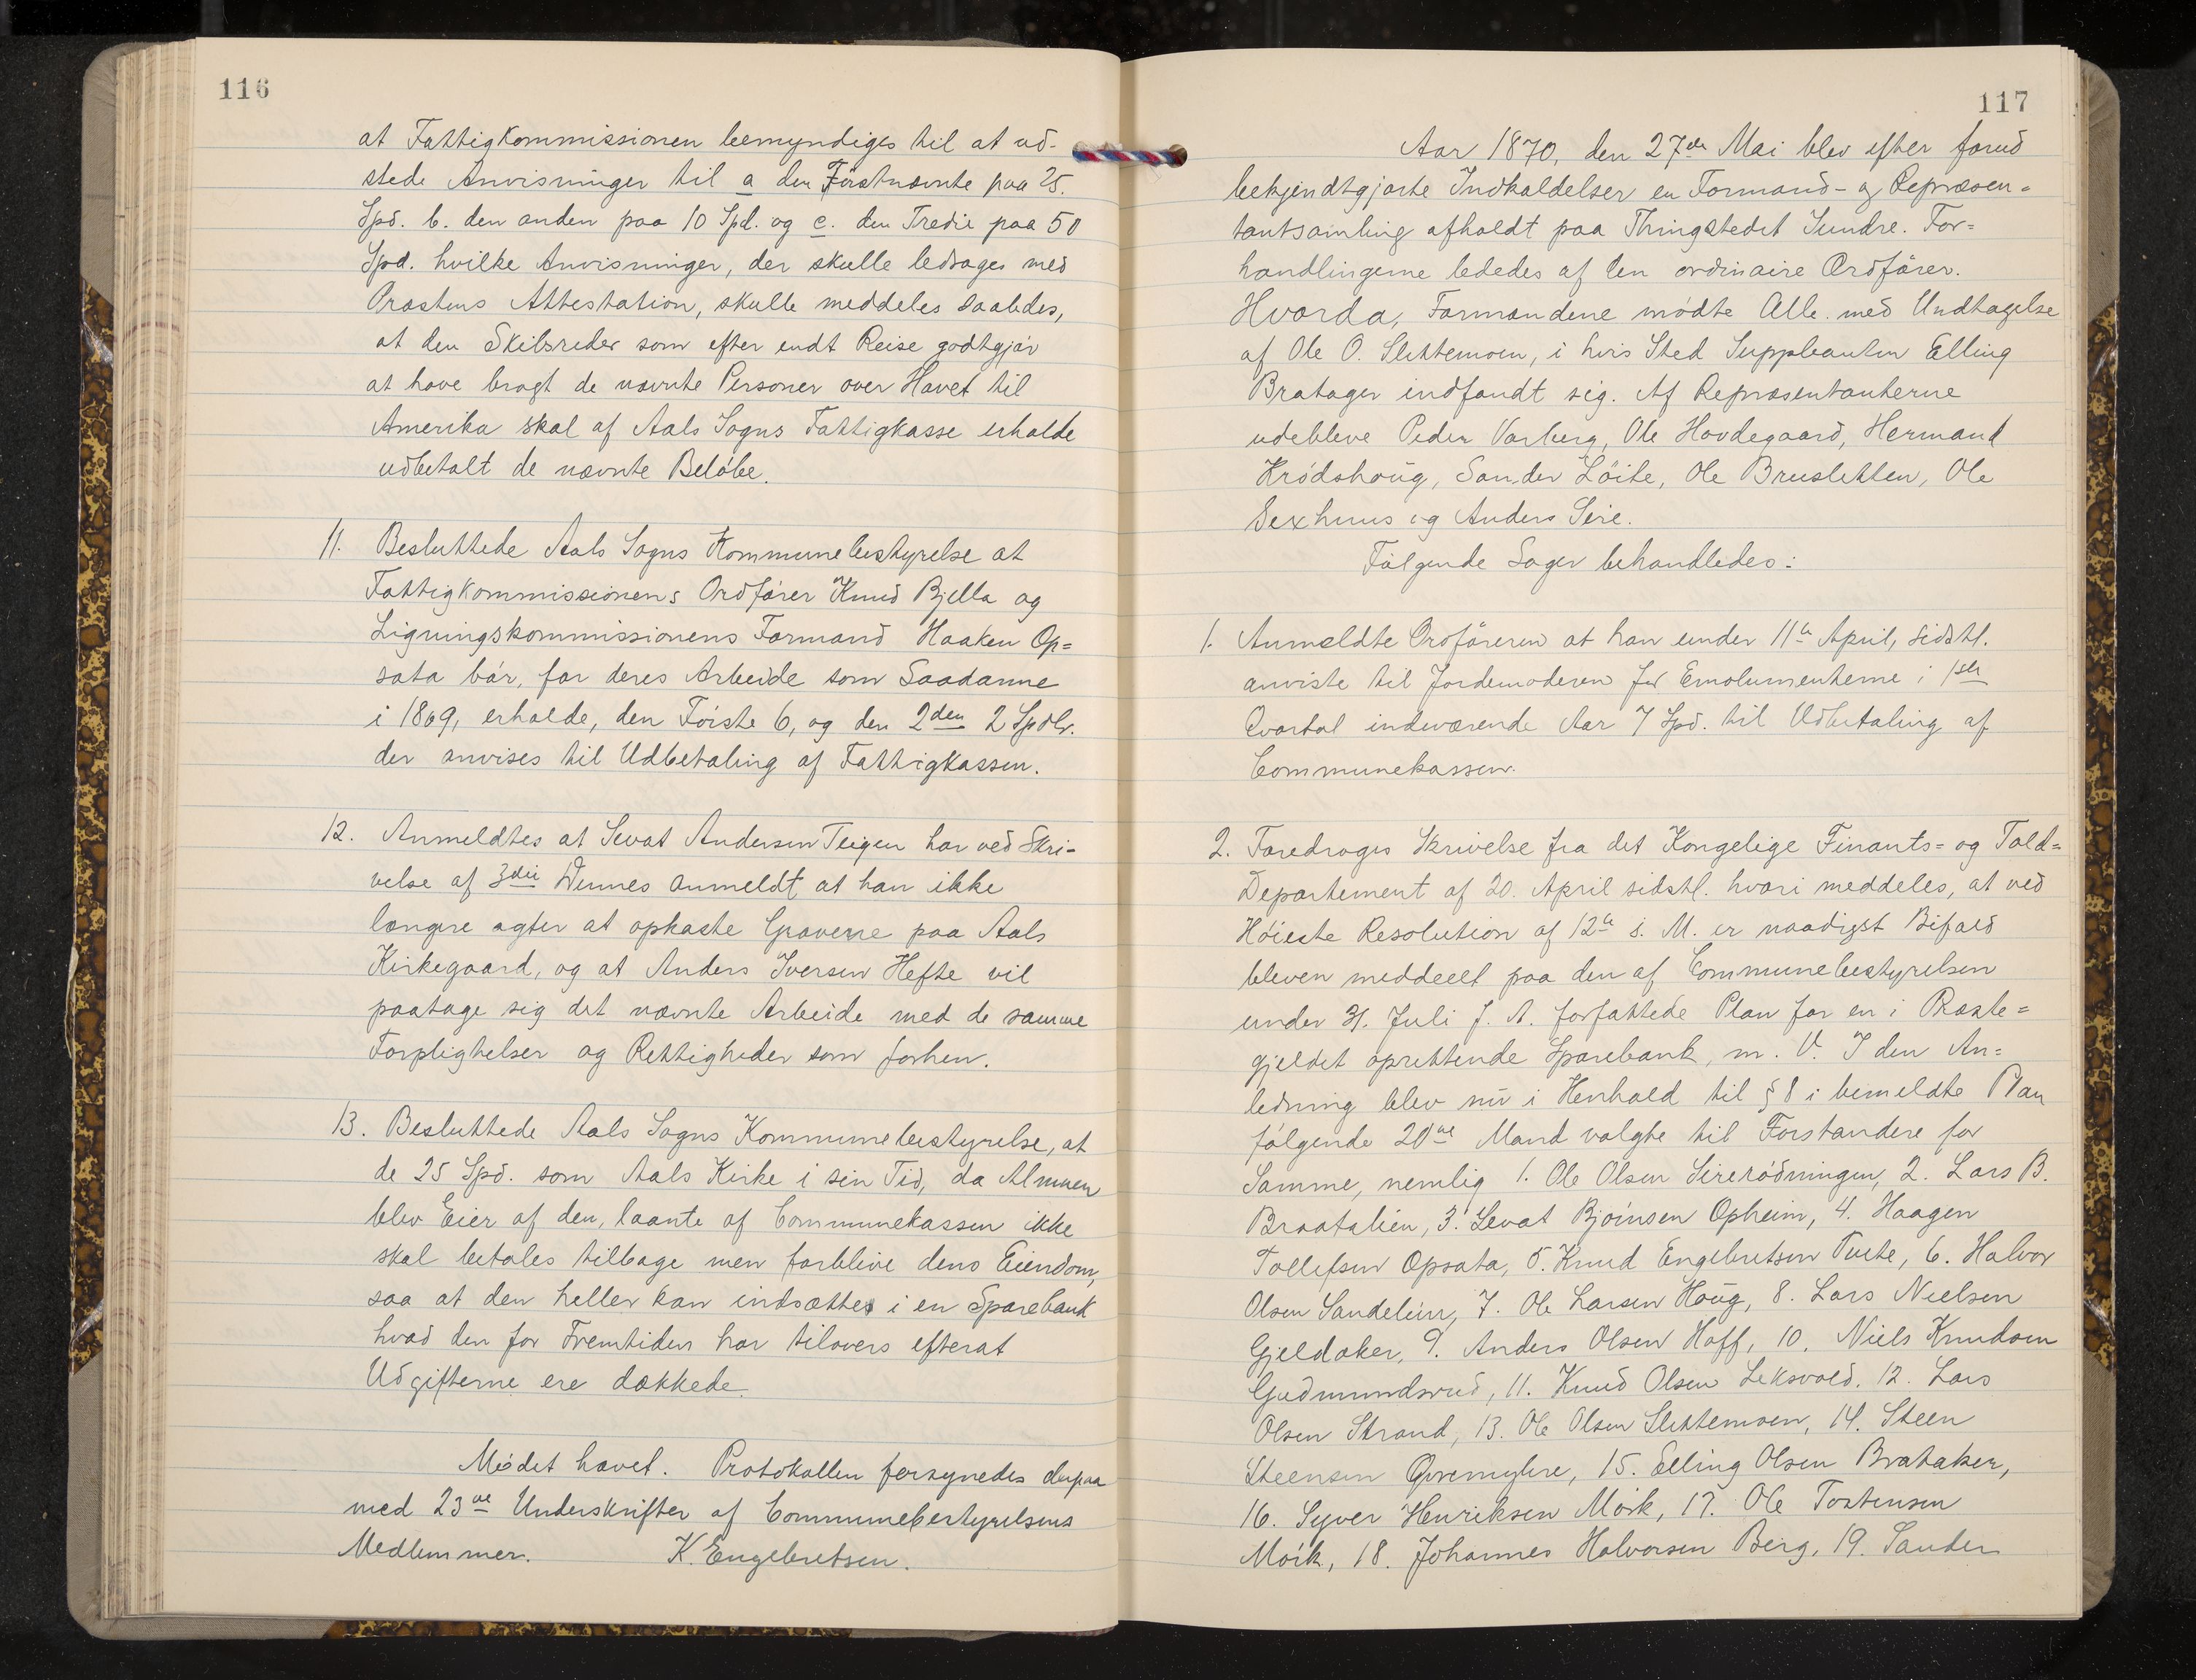 116
at Fattigkommissionen bemyndiges til at ud-
stede Anvisninger til a den Förstnævnte paa 25.
Spd. b. den anden paa 10 Spd. og c. den Tredie paa 50
Spd. hvilke Anvisninger, der skulle ledsages med
Præstens Attestation, skulle meddeles saaledes,
at den Skibsreder som efter endt Reise godtgjör
at have bragt de nævnte Personer over Havet til
Amerika skal af Aals Sogns Fattigkasse erholde
udbetalt de nævnte Belöbe.
11. Besluttede Aals Sogns Kommunebestyrelse at
Fattigkommissionens Ordförer Knud Bjella og
Ligningskommissionens Formand Haaken Op=
sata bör, for deres Arbeide som Saadanne
i 1869, erholde, den Förste 6, og den 2den 2 Spdlr.
der anvises til Udbetaling af Fattigkassen.
12. Anmeldtes at Sevat Andersen Teigen har ved Skri-
velse af 3die Dennes anmeldt at han ikke
længere agter at opkaste Gravene paa Aals
Kirkegaard, og at Anders Iversen Hefte vil
paatage sig det nævnte Arbeide med de samme
Forpligtelser og Rettigheder som forhen.
13. Besluttede Aals Sogns Kommunebestyrelse, at
de 25 Spd. som Aals Kirke i sin Tid, da Almuen
blev Eier af den, laante af Communekassen ikke
skal betales tilbage men forblive dens Eiendom,
saa at den heller kan indsættes i en Sparebank
hvad den for Fremtiden har tilovers efterat
Udgifterne ere dækkede.
Mödet hævet. Protokollen forsynedes derpaa
med 23de Underskrifter af Communebestyrelsens
Medlemmer. K. Engebretsen.
117
Aar 1870, den 27de Mai blev efter forud
bekjendtgjorte Indkaldelser en Formand- og Repræsen=
tantsamling afholdt paa Thingstedet Sundre. For=
handlingerne lededes af den ordinaire Ordförer.
Hvorda, Formændene mödte Alle med Undtagelse
af Ole O. Slettemoen, i hvis Sted Suppleanten Elling
Bratager indfandt sig. Af Repræsentanterne
udebleve Peder Varberg, Ole Hovdegaard, Hermand
Krödshoug, Sander Löite, Ole Brusletten, Ole
Sexhuus og Anders Sire.
Fölgende Sager behandledes:
1. Anmeldte Ordföreren at han under 11te April, sidstl.
anviste til Jordemoderen for Emolumenterne i 1ste
Qvartal indeværende Aar 7 Spd. til Udbetaling af
Communekassen.
2. Foredroges Skrivelse fra det Kongelige Finants= og Told=
Departement af 20. April sidstl. hvori meddeles, at ved
Höieste Resolution af 12te s. M. er naadigst Bifald
bleven meddeelt paa den af Communebestyrelsen
under 31. Juli f. A. forfattede Plan for en i Præste=
gjeldet oprettende Sparebank, m. V. I den An=
ledning blev nu i Henhold til § 8 i bemeldte Plan
fölgende 20ve Mænd valgte til Forstandere for
Samme, nemlig 1. Ole Olsen Sireródningen, 2. Lars B.
Braatalien, 3. Sevat Björnsen Opheim, 4. Haagen
Tollefsen Opsata, 5. Knud Engebretsen Tuete, 6. Halvor
Olsen Sandelien, 7. Ole Larsen Houg, 8. Lars Nielsen
Gjeldaker, 9. Anders Olsen Hoff, 10. Niels Knudsen
Gudmundsrud, 11. Knud Olsen Leksvold. 12. Lars
Olsen Strand, 13. Ole Olsen Slettemoen, 14. Steen
Steensen Qvremyhre, 15. Elling Olsen Brataker,
16. Syver Henriksen Mörk, 17. Ole Tostensen
Mörk, 18. Johannes Halvorsen Berg, 19. Sander